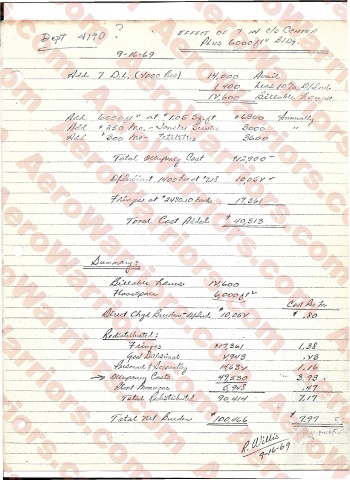 Dept 4190 ?
EFFECT OF 7 IN C/O CENTER
PLUS 6000 sq Bldg.
9-16-69
Add 7 D.L. (2000 Hrs) 14,000 Avail
1,400 Less 10%
12,600 Billable hours
Add 6000 at $1.05 sq. ft. $6300 Annually
Add $250 Mo. - Janitor Service 3000 "
Add $300 Mo - Utilities 3600
Total Occupancy Cost $12900 -
1400 Hrs at 10,054
Fringes at 17,361
Total Cost Added $ 40,313
Summary:
Billable hours 12,600
Floorspace 6,000
Cost Per Hr
Direct Chgd Burden - $10,054 $ .80
Redistributed:
Fringes $17,361 1.38
Gen Divisional .48
Personnel & Security 14,634 1.16
→ Occupancy Costs 47,530 3.93
Plant Manager 5,948 .47
Total Redistributed 90,414 7.17
Total Net Burden $100,466 $ 7.97
R. Willis
9-16-69